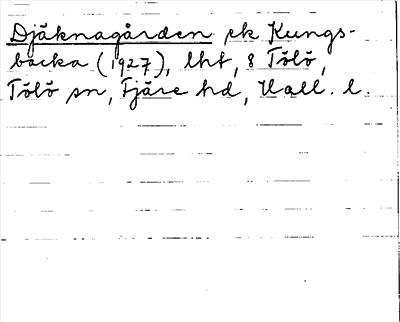 Djäknagården ek Kungs-
backa (1927), lht, 8 Tölö,
Tölö sn, Fjäre hd, Hall. l.